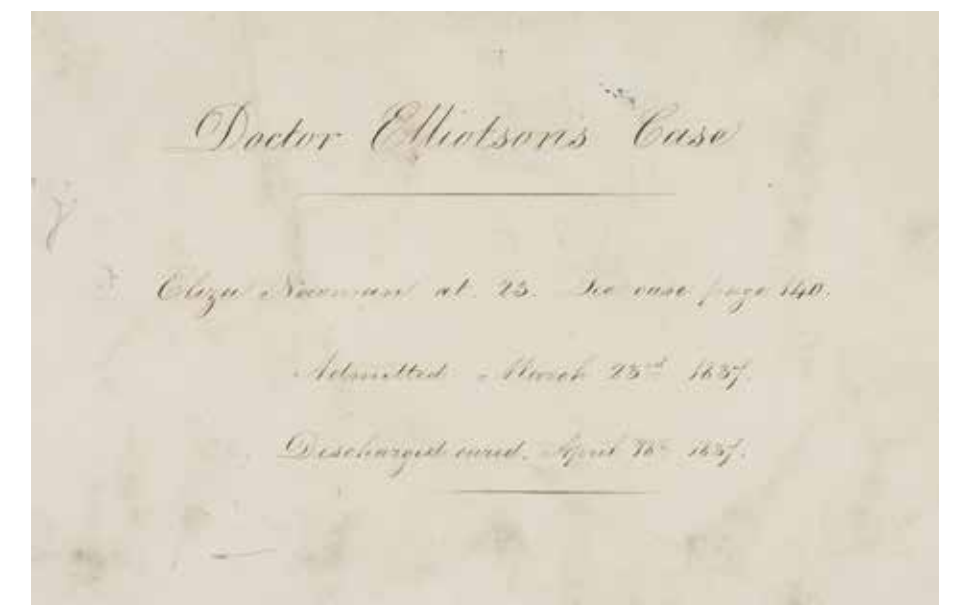 Doctor Elliotsons Case
Eliza Newman æt. 23. See case page 140.
Admitted March 23rd 1837.
Discharged cured. April 1837.